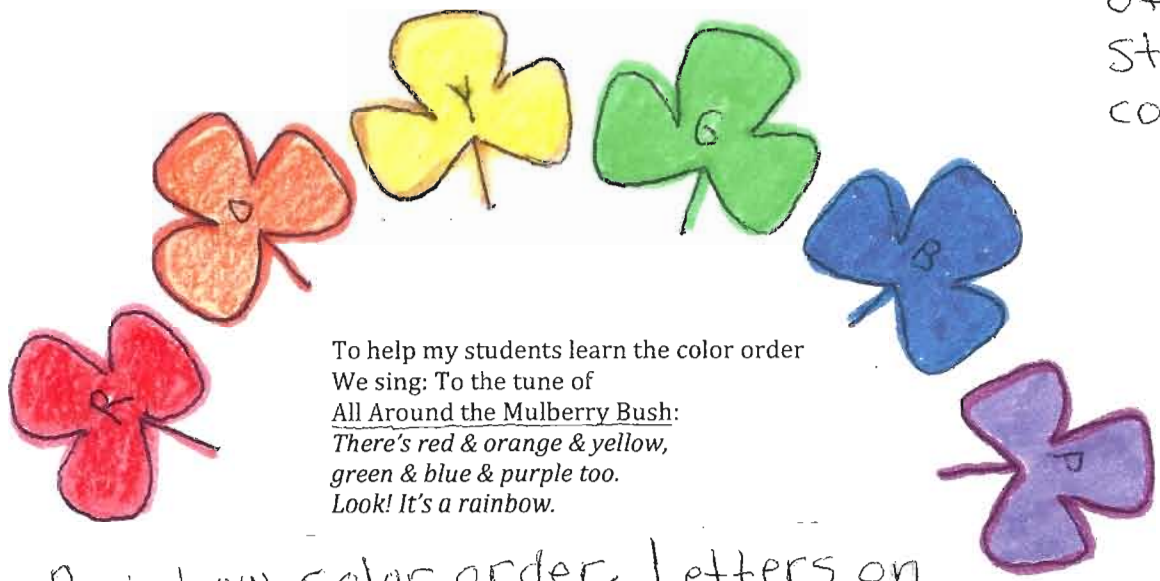 st
co
Y
G
O
B
R
P
To help my students learn the color order
We sing: To the tune of
All Around the Mulberry Bush:
There's red & orange & yellow,
green & blue & purple too.
Look! It's a rainbow.
Rainbow color order. Letters on